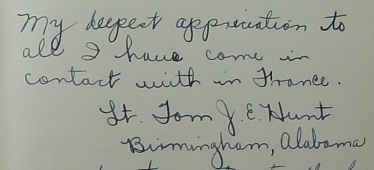 My deepest appreciation to
all I have come in
contact with in France.
Lt. Tom J. E. Hunt
Birmingham, Alabama